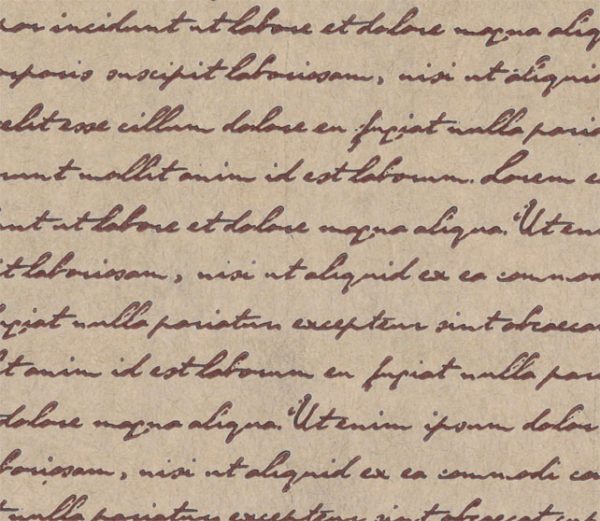 por incidunt ut labore et dolore magna aliq
orporis suscipit laboriosam, nisi ut aliquid
elit esse cillum dolore eu fugiat nulla paria
runt mollit anim id est laborum. Lorem e
unt ut labore et dolore magna aliqua. Ut eni
it laboriosam, nisi ut aliquid ex ea commodi
ugiat nulla pariatur excepteur sint obcaecat
it anim id est laborum eu fugiat nulla par
dolore magna aliqua. Ut enim ipsum dolor
boriosam, nisi ut aliquid ex ea commodi co
t nulla pariatur excepteur sint obcaecat cup